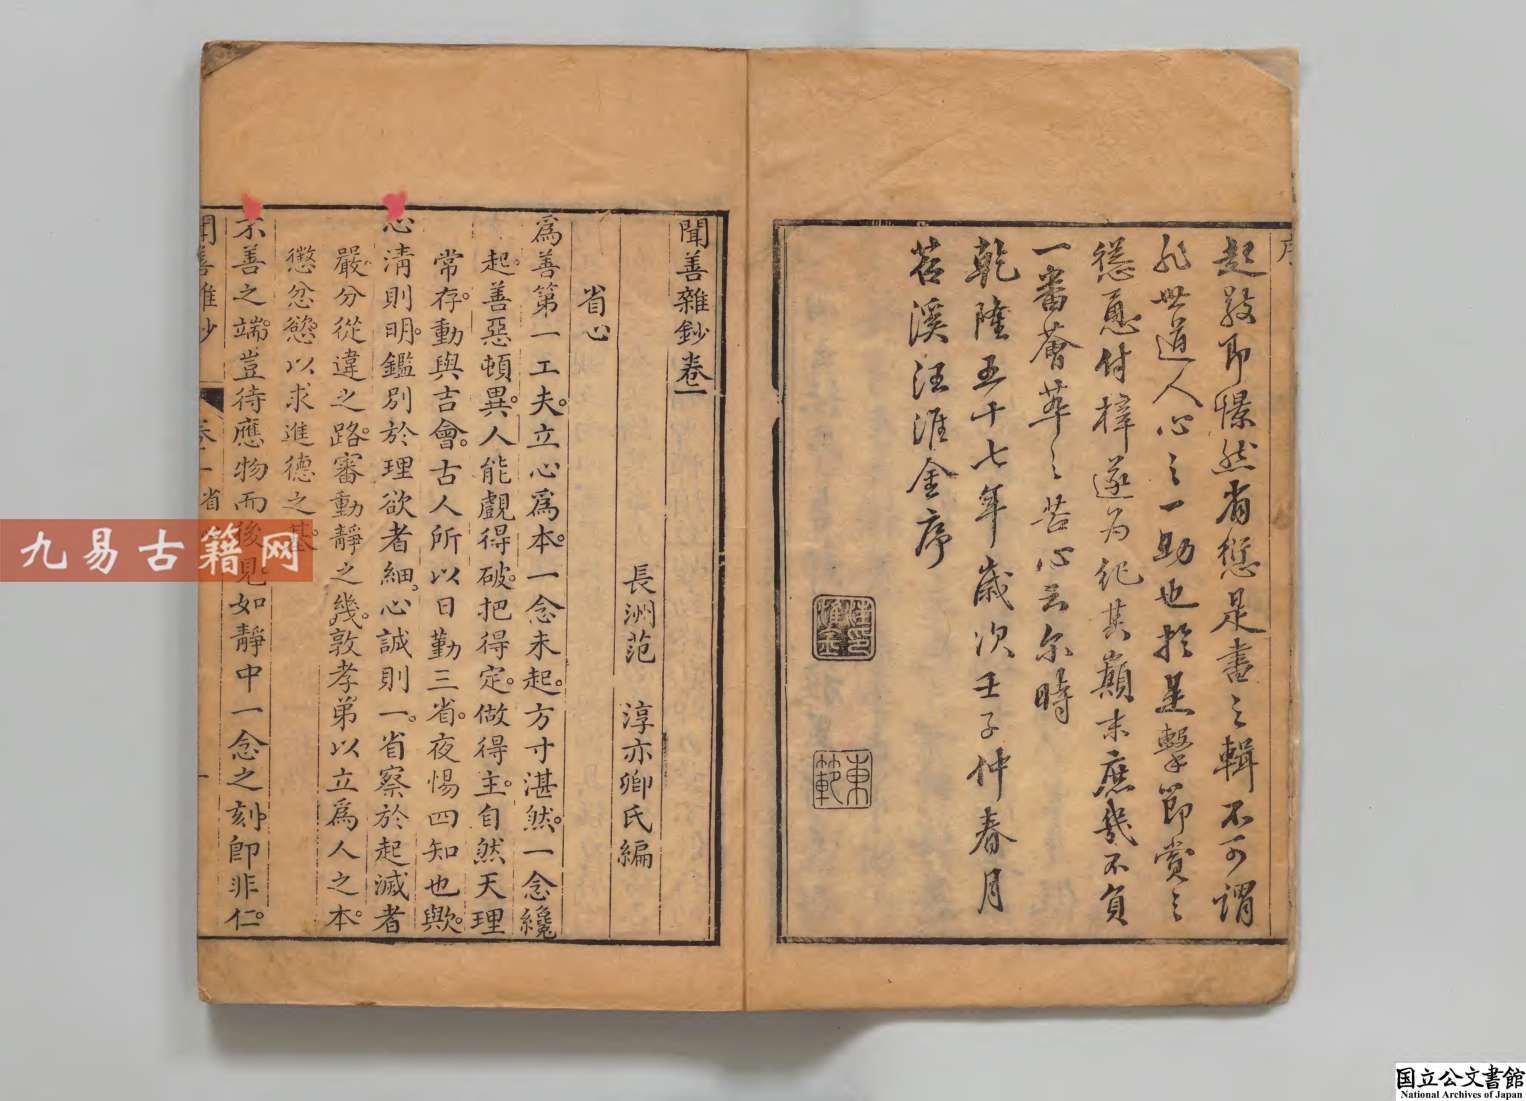 序
起敬即憬然省愆是書之輯不可謂
非世道人心之一助也於是擊節賞之
慫恿付梓遂为紀其巔末庶幾不負
一番薈萃之苦心云尔時
乾隆五十七年歲次壬子仲春月
苕溪汪淮金序
汪印淮金
東範
聞善雜鈔卷一
長洲范 淳亦卿氏編
省心
爲善第一工夫。立心爲本。一念未起。方寸湛然。一念纔
起。善惡頓異。人能覷得破。把得定。做得主。自然天理
常存。動與吉會。古人所以日勤三省。夜惕四知也歟。
心淸則明。鑑別於理欲者細。心誠則一。省察於起滅者
嚴。分從違之路。審動靜之幾。敦孝弟以立爲人之本。
懲忿慾以求進德之基。
不善之端。豈待應物而後見。如靜中一念之刻。卽非仁。
聞善雜鈔 卷一 省 一
九易古籍网
国立公文書館
National Archives of Japan